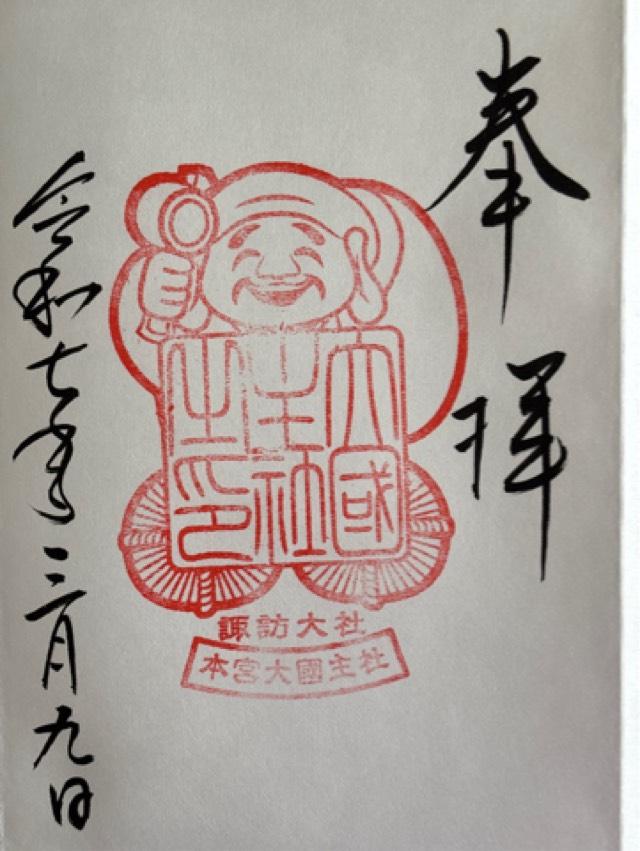 奉拝
大國
主社
之印
諏訪大社
本宮大國主社
令和七年三月九日